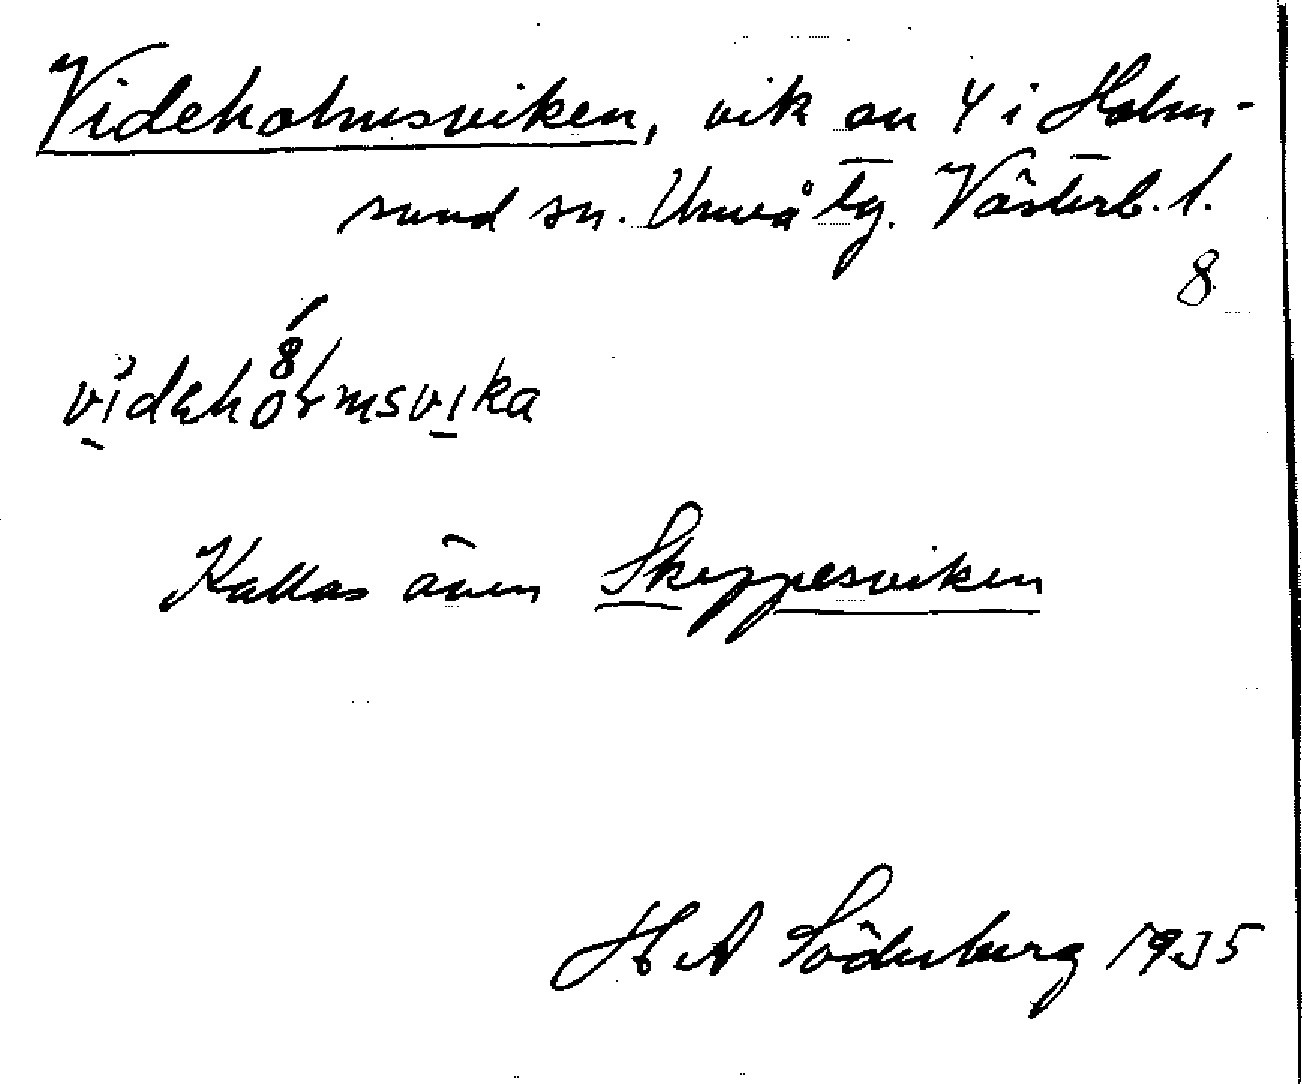 Videholmsviken, vik av 4 i Holm-
sund sn. Umeå tg. Västerb. l.
8
Kallas även Skeppesviken
H A Söderberg 1935